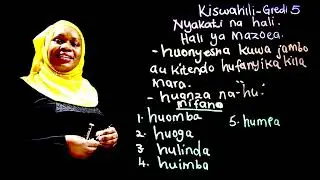 Kiswahili-Gredi 5
Nyakati na hali.
Hali ya mazoea.
- huonyesha kuwa jambo
au kitendo hufanyika kila
mara.
- huanza na-hu-
mifano
1. huomba
2. huoga
3 hulinda
4. huimba
5. humpa